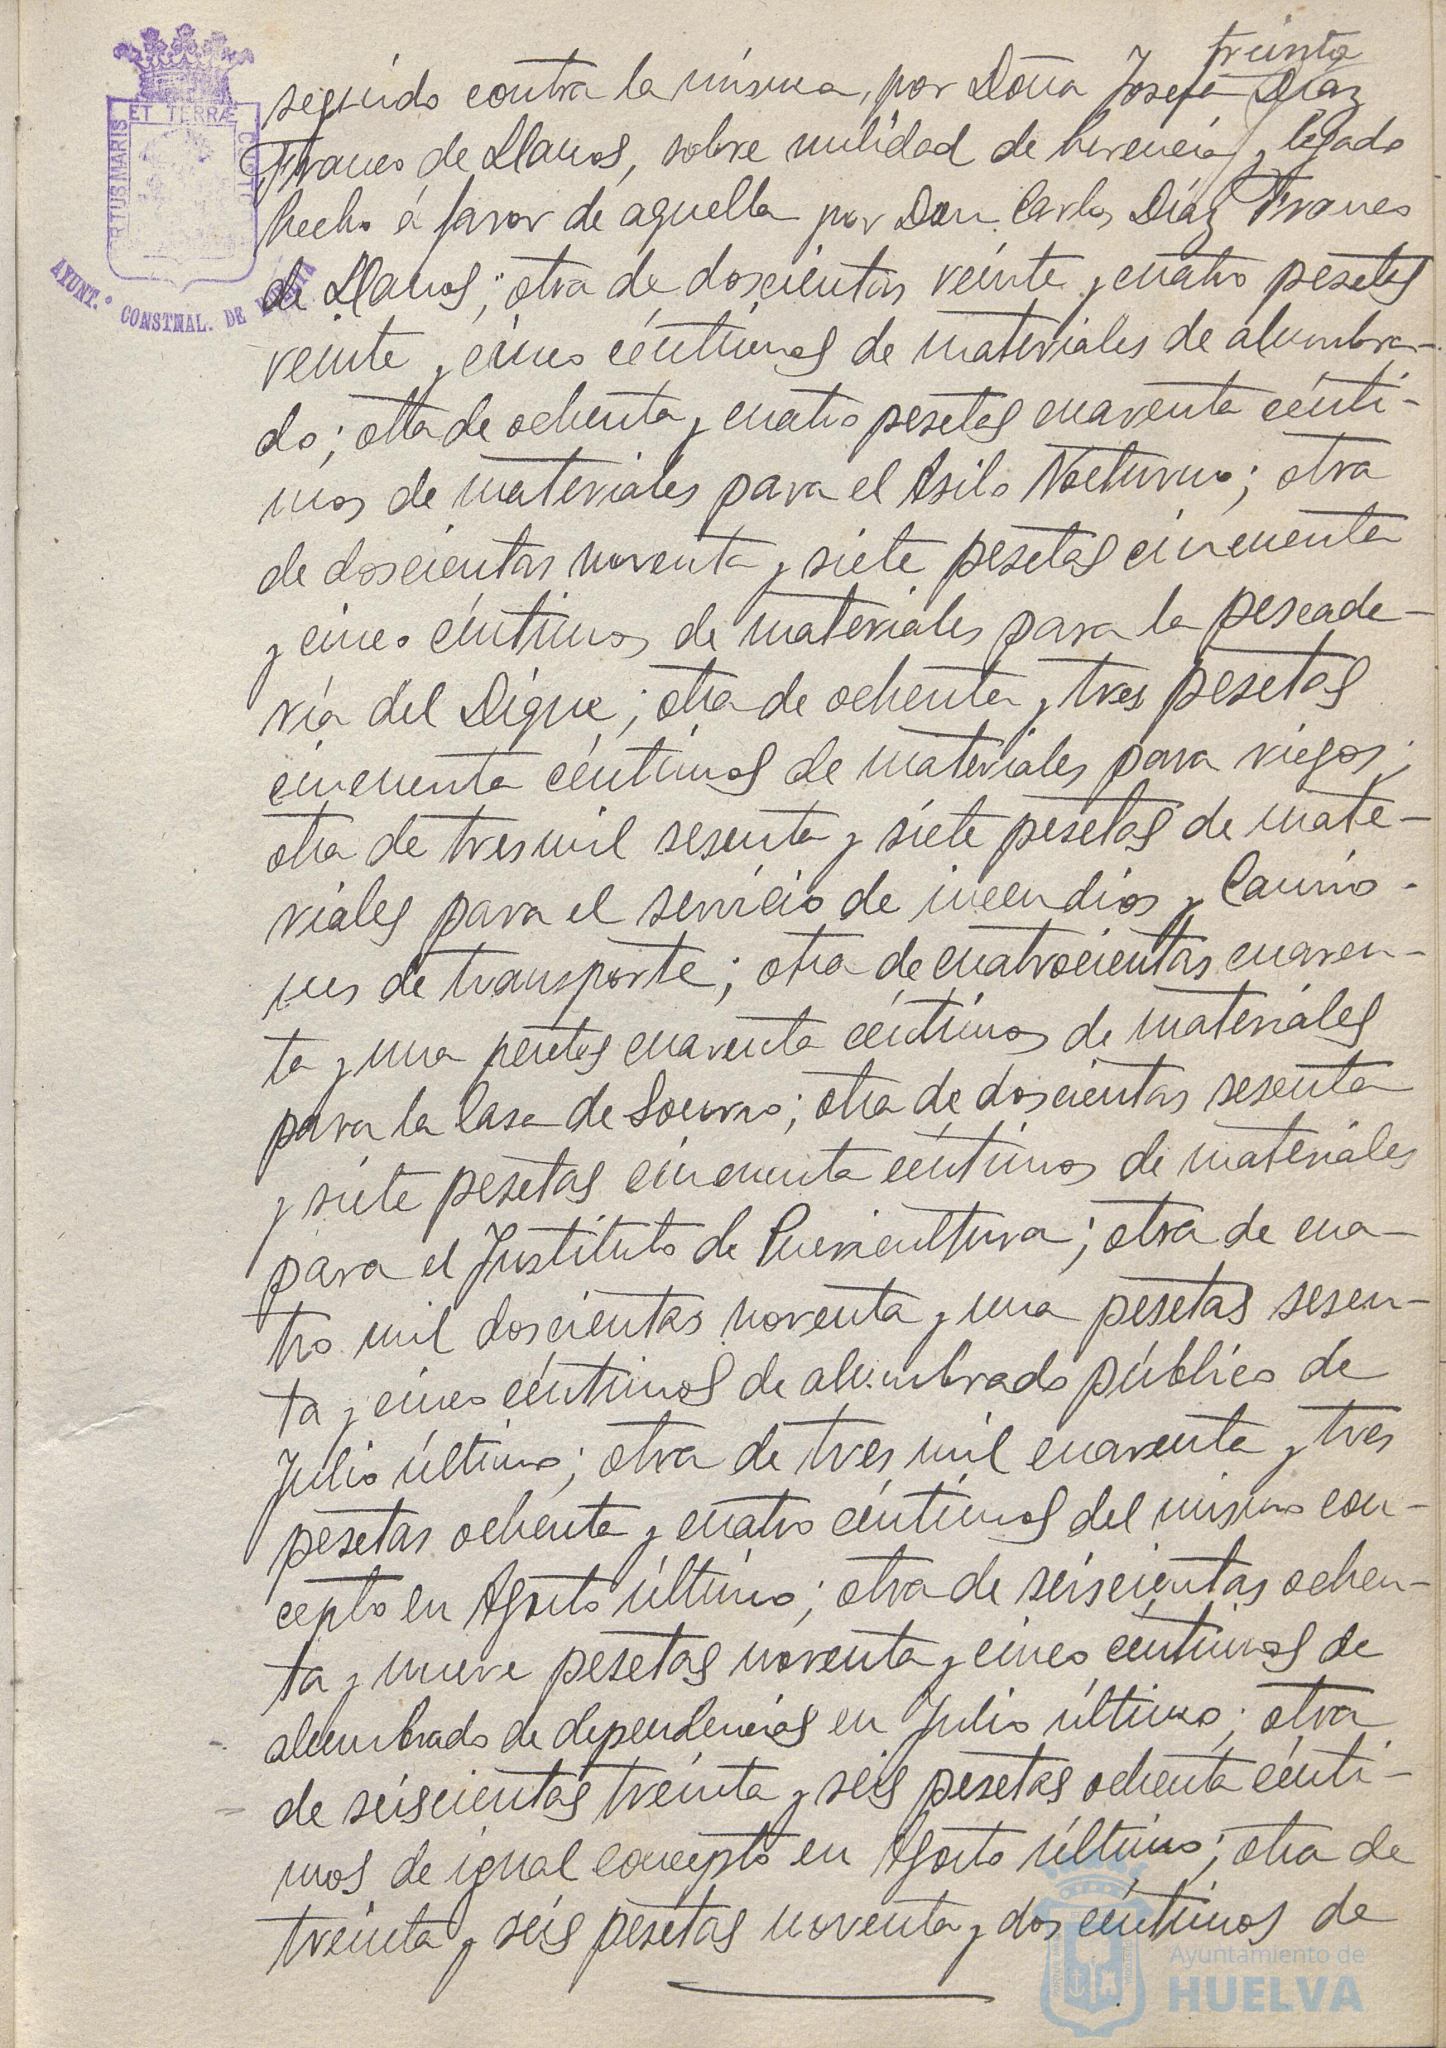 treinta
seguido contra la misma, por Doña Josefa Díaz
Franco de Llanos, sobre nulidad de herencia y legado
hecho á favor de aquella por Don Carlos Díaz Franco
de Llanos; otra de doscientas veinte y cuatro pesetas
veinte y cinco céntimos de materiales de alumbra-
do; otra de ochenta y cuatro pesetas cuarenta cénti-
mos de materiales para el Asilo Nocturno; otra
de doscientas noventa y siete pesetas cincuenta
y cinco céntimos de materiales para la pescade-
ría del Dique; otra de ochenta y tres pesetas
cincuenta céntimos de materiales para riegos;
otra de tres mil sesenta y siete pesetas de mate-
riales para el servicio de incendios y Camio-
nes de transporte; otra de cuatrocientas cuaren-
ta y una pesetas cuarenta céntimos de materiales
para la Casa de Socorro; otra de doscientas sesenta
y siete pesetas cincuenta céntimos de materiales
para el Instituto de Puericultura; otra de cua-
tro mil doscientas noventa y una pesetas sesen-
ta y cinco céntimos de alumbrado público de
Julio último; otra de tres mil cuarenta y tres
pesetas ochenta y cuatro céntimos del mismo con-
cepto en Agosto último; otra de seiscientas ochen-
ta y nueve pesetas noventa y cinco céntimos de
alumbrado de dependencias en Julio último; otra
de seiscientas treinta y seis pesetas ochenta cénti-
mos de igual concepto en Agosto último; otra de
treinta y seis pesetas noventa y dos céntimos de
ET TERRÆ
PORTUS MARIS
CUSTO
AYUNT.º CONSTNAL. DE HUELVA
Ayuntamiento de
HUELVA